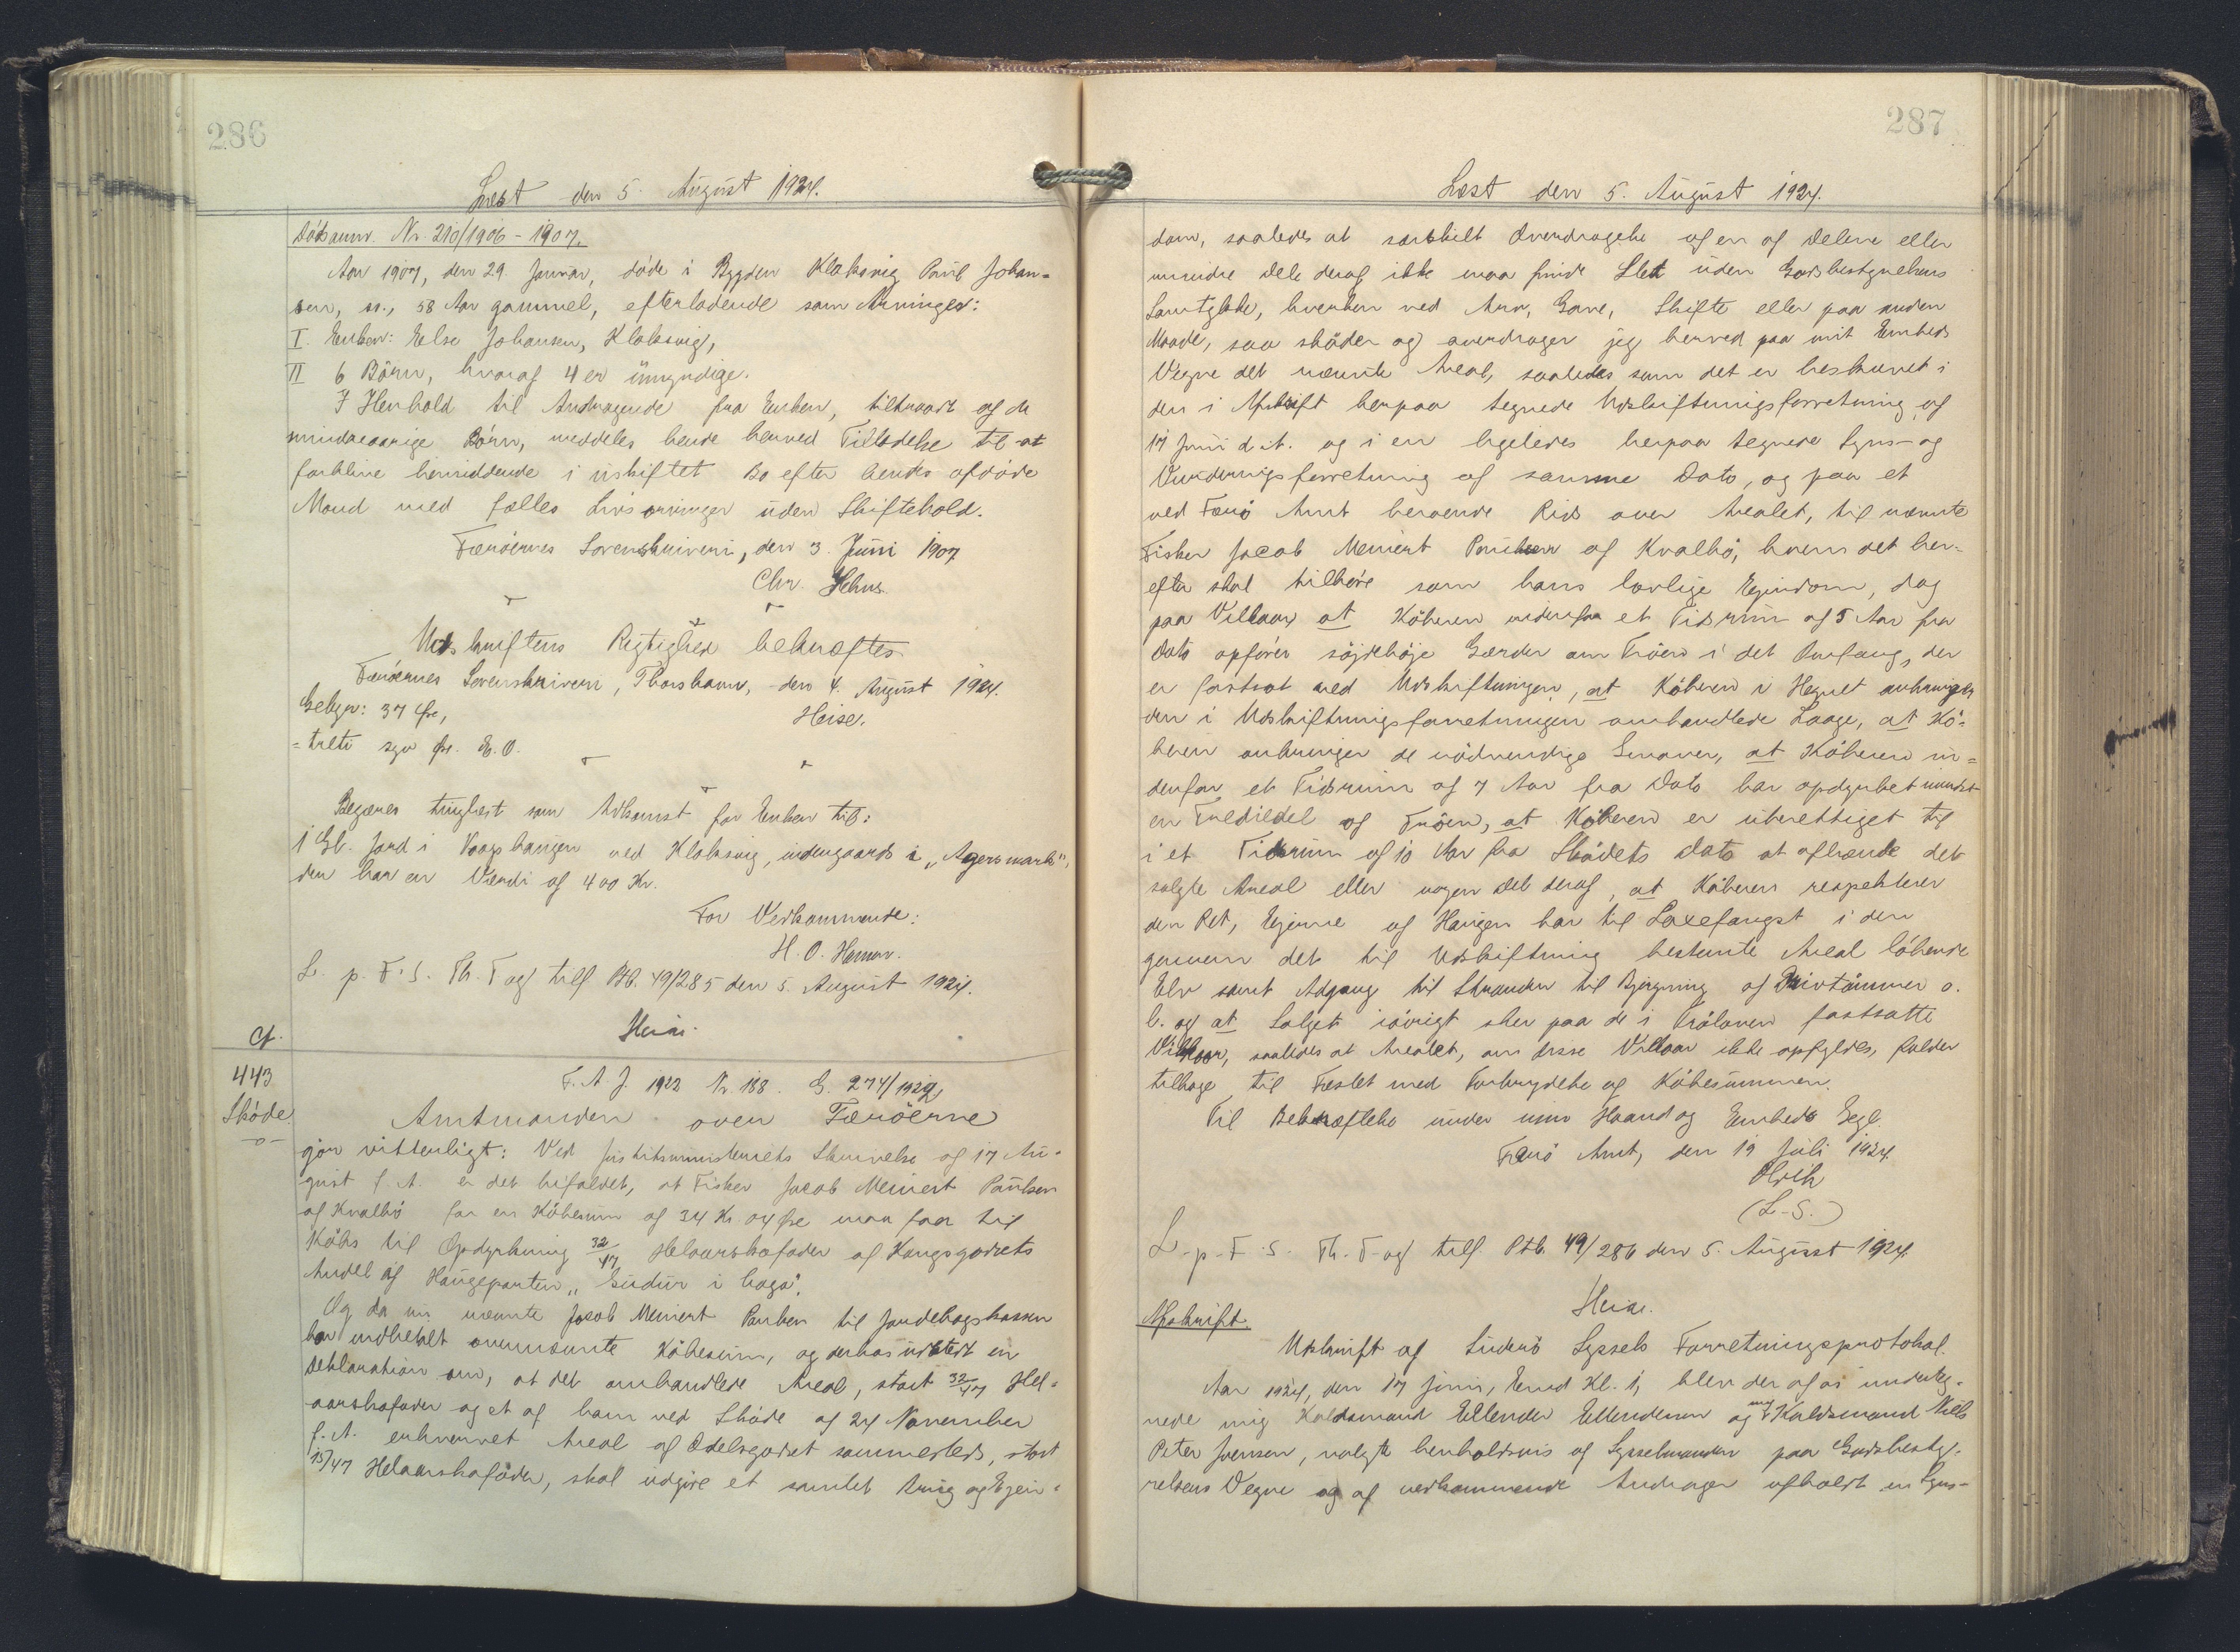 286
Læst den 5. August 1924.
Dödsanm. Nr. 210/1906-1907.
Aar 1907, den 29. Januar, döde i Bygden Klaksvig Poul Johan=
sen, 58 Aar gammel, efterladende som Arvinger:
I. Enken: Else Johansen, Klaksvig,
II 6 Börn, hvoraf 4 er umyndige.
I Henhold til Andragende fra Enken, tiltraadt af de
mindreaarige Börn, meddeles hende herved Tilladelse til at
forblive hensiddende i uskiftet Bo efter hendes afdöde
Mand med fælles Livsarvinger uden Skiftehold.
Færöernes Sorenskriveri, den 3. Juni 1907
Chr.
Udskriftens Rigtighed bekræftes
Færöernes Sorenskriveri, Thorshavn, den 4. August 1924.
Gebyr: 37 Öre, Heise.
=treti syv Öre. E.O.
Begæres tinglæst som Adkomst for Enken til:
1 Gl. Jord i Vaagshaugen ved Klaksvig, indengaards i "Agersmark",
den har en Værdi af 400 Kr.
For Vedkommende:
H. O.
L. p. F. S. Th. T og tilf Ptb. 49/285 den 5. August 1924.
Heise.
Cf.
443
Sköde
-o-
F. A. J. 1922 Nr. 188. G. 274/1924
Amtmanden over Færöerne
gör vitterligt: Ved Justitsministeriets Skrivelse af 17 Au-
gust f. A. er det bifaldet, at Fisker Jacob Meinert Poulsen
af Kvalbö for en Köbesum af 34 Kr 04 Öre maa faa til
Köbs til Opdyrkning 32/47 Helaarskofoder af Kongsgodsets
Andel af Haugeparten "Sudur i haga".
Og da nu nævnte Jacob Meinert Poulsen til Jordebogskassen
har indbetalt ovennævnte Köbesum, og derhos udstedt en
Deklaration om, at det omhandlede Areal, stort 32/47 Hel=
aarskofoder og et af ham ved Sköde af 24 November
f. A. erhvervet Areal af Odelsgodset sammesteds, stort
15/47 Helaarskofoder, skal udgöre et samlet Brug og Ejen=
287
Læst den 5. August 1924.
dom, saaledes at særskilt Overdragelse af en af Delene eller
mindre Dele deraf ikke maa finde Sted uden Godsbestyrelsens
Samtykke, hverken ved Arv, Gave, Skifte eller paa anden
Maade, saa sköder og overdrager jeg herved paa mit Embeds
Vegne det nævnte Areal, saaledes som det er beskrevet i
den i Afskrift herpaa tegnede Udskiftningsforretning af
17 Juni d. A. og i en ligeledes herpaa tegnede Syns- og
Vurderingsforretning af samme Dato, og paa et
ved Færö Amt beroende Rids over Arealet, til nævnte
Fisker Jacob Meinert Poulsen af Kvalbö, hvem det her=
efter skal tilhöre som hans lovlige Ejendom, dog
paa Vilkaar at Köberen indenfor et Tidsrum af 5 Aar fra
Dato opförer söjdehöje Gærder om Tröen i det Omfang, der
er fastsat ved Udskiftningen, at Köberen i Hegnet anbringer
den i Udskiftningsforretningen omhandlede Laage, at Kö=
beren anbringer de nödvendige Svarer, at Köberen in=
denfor et Tidsrum af 7 Aar fra Dato har opdyrket mindst
en Trediedel af Tröen, at Köberen er uberettiget til
i et Tidsrum af 10 Aar fra Sködets Dato at afhænde det
solgte Areal eller nogen Del deraf, at Köberen respekterer
den Ret, Ejerne af Haugen har til Laxefangst i den
gennem det til Udskiftning bestemte Areal löbende
Elv samt Adgang til Stranden til Bjergning af Drivtömmer o.
l. og at Salget iövrigt sker paa de i Tröloven fastsatte
Vilkaar, saaledes at Arealet, om disse Vilkaar ikke opfyldes, falder
tilbage til Fæstet med Fortrydelse af Köbesummen.
Til Bekræftelse under min Haand og Embeds Segl.
Færö Amt, den 19 Juli 1924.
(L.S.)
L. p. F. S. Th. T. og tilf. Ptb. 49/286 den 5. August 1924.
Heise.
Afskrift.
Udskrift af Suderö Syssels Forretningsprotokol.
Aar 1924, den 17 Juni, Emd Kl. 1, blev der af os underteg-
nede mig Kaldsmand Ellender Ellendersen og mig Kaldsmand Niels
Peter Joensen, valgte henholdsvis af Sysselmanden paa Godsbesty-
relsens Vegne og af vedkommende Andrager afholdt en Syns-